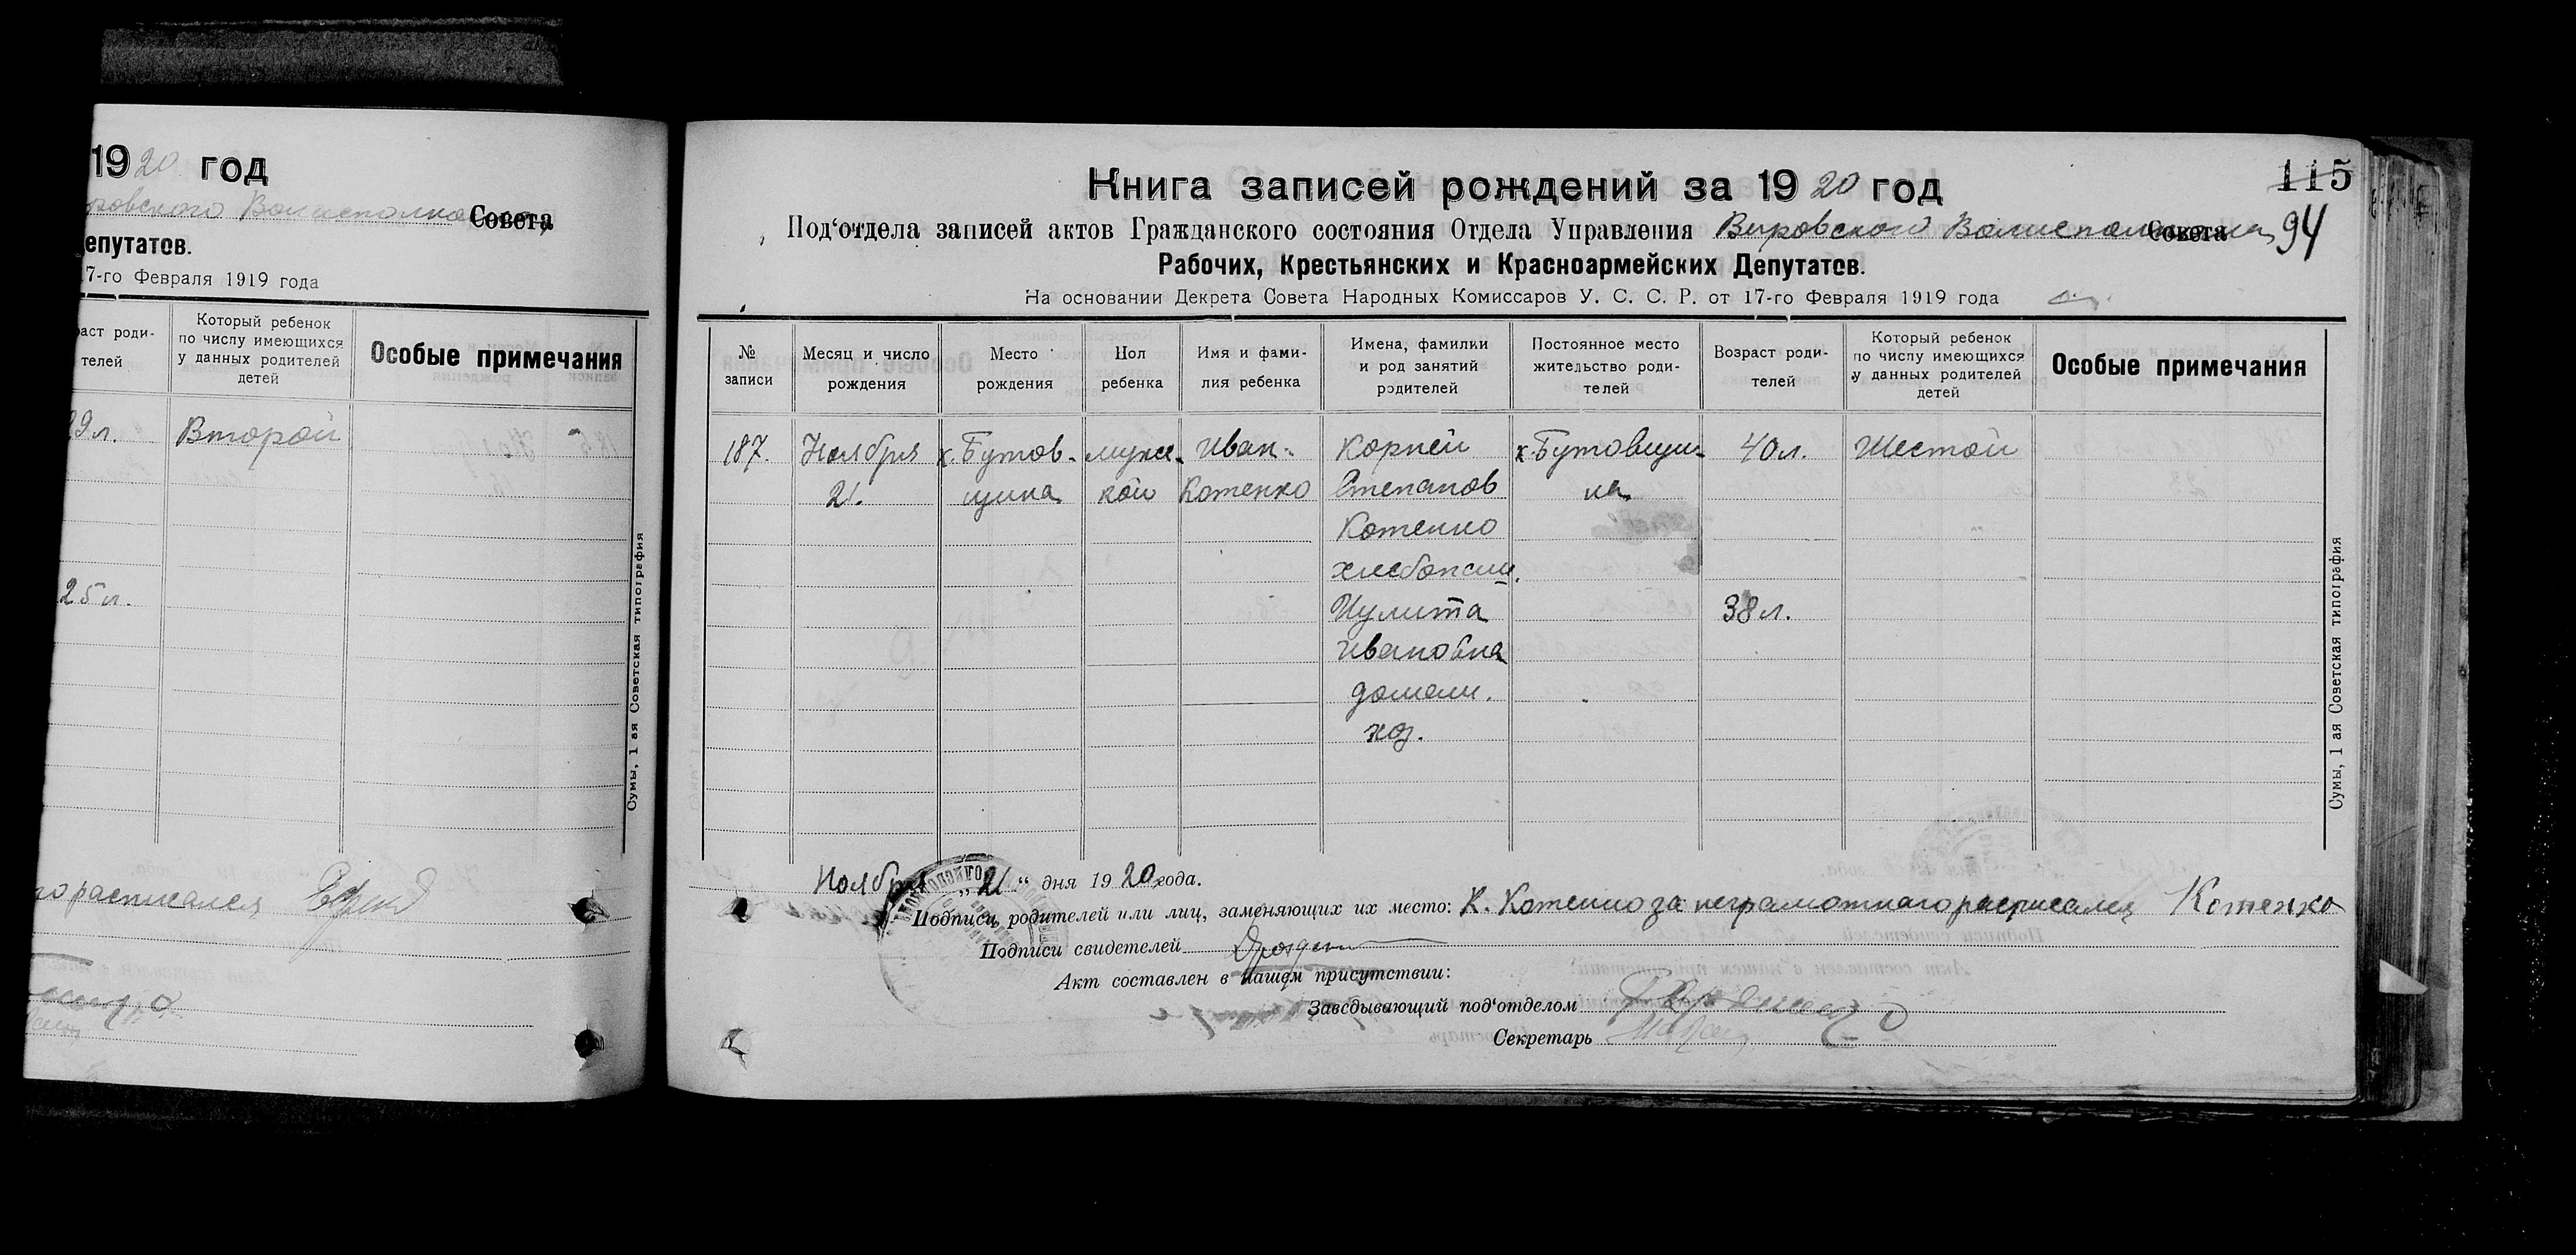 1920 год
Совета
епутатов.
7-го Февраля 1919 года
раст роди-
телей
Который ребенок
по числу имеющихся
у данных родителей
детей
Особые примечания
29 л.
Второй
25 л.
расписался
Сумы, 1 ая Советская типография
115
94
Книга записей рождений за 1920 год
Под‘отдела записей актов Гражданского состояния Отдела Управления Вировского Волисполкома Совета
Рабочих, Крестьянских и Красноармейских Депутатов.
На основании Декрета Совета Народных Комиссаров У. С. С. Р. от 17-го Февраля 1919 года
№
записи
Месяц и число
рождения
Место
рождения
Пол
ребенка
Имя и фами-
лия ребенка
Имена, фамилии
и род занятий
родителей
Постоянное место
жительство роди-
телей
Возраст роди-
телей
Который ребенок
по числу имеющихся
у данных родителей
детей
Особые примечания
187.
Ноября
21.
х. Бутов-
щина
мужс-
кой
Иван
Котенко
Корней
Степанов
Котенко
хлебопаш.
Иулита
Ивановна
домашн.
хоз.
х. Бутовщи-
на
40 л.
38 л.
Шестой
Сумы, 1 ая Советская типография
Ноября „21“ дня 1920 года.
Подписи родителей или лиц, заменяющих их место: К. Котенко за неграмотного расписался Котенко
Подписи свидетелей
Акт составлен в нашем присутствии:
Заведывающий под‘отделом
Секретарь